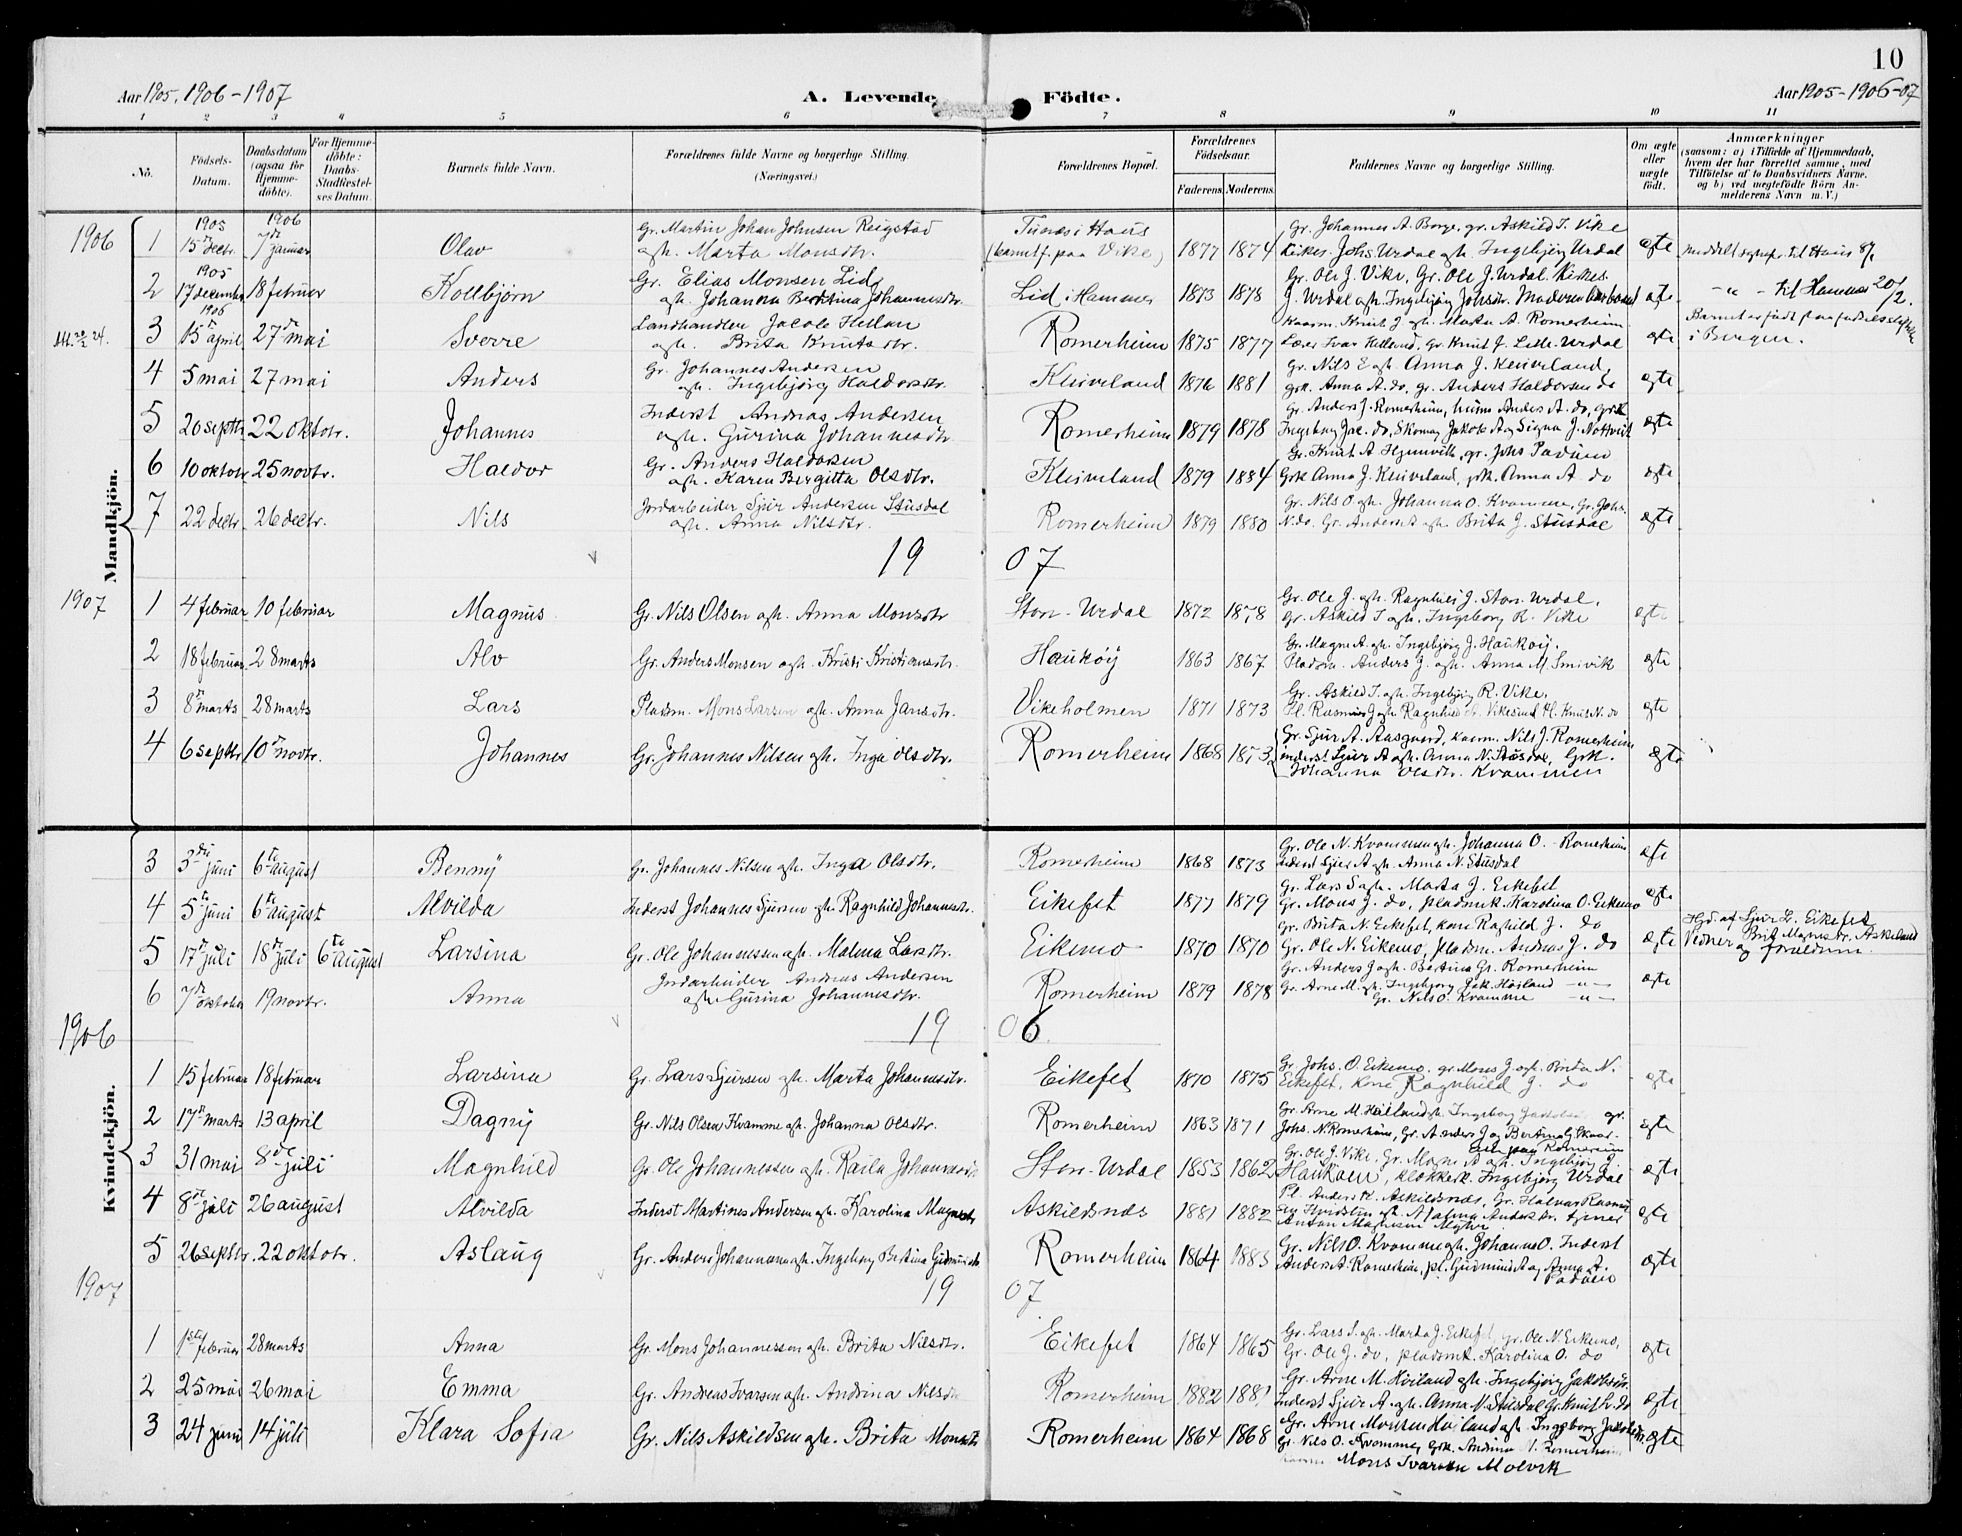 10
Aar 1905, 1906-1907 A. Levende Födte. Aar 1905-1906-07
1 2 3 4 5 6 7 8 9 10 11
No. Födsels-Datum. Daabsdatum (ogsaa for Hjemmedöbte). For Hjemmedöbte: Daabs-Stadfæstelses Datum. Barnets fulde Navn. Forældrenes fulde Navne og borgerlige Stilling. (Næringsvei.) Forældrenes Bopæl. Forældrenes Födselsaar. Faderens. Moderens. Faddernes Navne og borgerlige Stilling. Om ægte eller uægte födt. Anmærkninger (saasom: a) i Tilfælde af Hjemmedaab, hvem der har forrettet samme, med Tilföielse af to Daabsvidners Navne. og b) ved uægtefödte Börn Anmelderens Navn m. V.)
Mandkjön.
1906 1 1905 15de decbr. 1906 7de januar Olav Gr. Martin Johan Johnsen Reigstad
ogh. Marta Monsdtr. Tunes i Haus 1877 1874 Gr. Johannes A. Borge, gr. Askild I. Vike
Kirkes. Johs. Urdal ogh. Ingebjörg Urdal egte
2 1905 17 december 18 februar Kolbjörn Gr. Elias Monsen Lid
ogh. Johanna Berntina Johannesdtr. Lid i Hammer 1873 1878 Gr. Ole J. Vike, Gr. Ole J. Urdal, Kirkes.
J. Urdal ogh. Ingebjörg Johsdtr. egte - " - til Hammer 20/2.
3 1906 15de april 27de mai Sverre Landhandler Jacob Helland
ogh. Brita Knutsdtr. Romerheim 1875 1877 Kaarm. Knut J. ogh. Marta A. Romerheim
Lærer Ivar Helland, gr. Knut J. Lille-Urdal egte Barnet er födt paa födselsstiftelse
i Bergen.
4 5 mai 27 mai Anders Gr. Johannes Andersen
ogh. Ingebjörg Haldorsdtr. Kleiveland 1876 1881 Gr. Nils E ogh. Anna J. Kleiveland,
grk. Anna A. do, gr. Anders Haldorsen do egte
5 20 septbr. 22 oktobr. Johannes Inderst Andreas Andersen
ogh. Gurina Johannesdtr. Romerheim 1879 1878 Gr. Anders J. Romerheim, Anders A. do, grk.
Ingeborg Jac. do, Skomag. Jakob A og Signa J. Nottveit egte
6 10 oktobr. 25 novbr. Haldor Gr. Anders Haldorsen
ogh. Karen Bergitta Olsdtr. Kleiveland 1879 1884 Gr. Knut A. Hjemvik, gr. Johs Padöen
Grk Anna J. Kleiveland, grk. Anna A. do egte
7 22 decbr. 26 decbr. Nils Jordarbeider Sjur Andersen Stusdal
ogh. Anna Nilsdtr. Romerheim 1879 1880 Gr. Nils O ogh. Johanna O. Kvamme, Gr. Johs.
N. do, Gr. Anders A ogh. Brita J. Stusdal egte
1907
1907 1 4 februar 10 februar Magnus Gr. Nils Olsen ogh. Anna Monsdtr Stor-Urdal 1872 1878 Gr. Ole J. ogh. Ragnhild J. Stor-Urdal,
Gr. Askild I ogh. Ingeborg R. Vike egte
2 18 februar 28 marts Alv Gr. Anders Monsen ogh. Kristi Kristiansdtr. Hauköy 1863 1867 Gr. Magne A ogh. Ingebjörg J. Hauköy,
Pladsm. Anders J. ogh. Anna M. Smivik egte
3 8de marts 28 marts Lars Pladsm. Mons Larsen ogh. Anna Jansdtr. Vikeholmen 1871 1873 Gr. Askild I. ogh. Ingebjörg R. Vike,
Pl. Rasmus J ogh. Ragnhild Vikesund Pl. Knut N. do egte
4 6 septbr. 10de novbr. Johannes Gr. Johannes Nilsen ogh. Inga Olsdtr. Romerheim 1868 1873 Gr. Sjur A. Aasgaard, kaarm. Nils J. Romerheim
inderst Sjur A ogh. Anna N. Stusdal, Grk.
Johanna Olsdtr. Kvammen egte
Kvindekjön.
3 3die juni 6te august Benny Gr. Johannes Nilsen ogh. Inga Olsdtr. Romerheim 1868 1873 Gr. Ole N. Kvammen ogh. Johanna O. Romerheim
Inderst Sjur A ogh. Anna N. Stusdal egte
4 5te juni 6te august Alvilda Inderst Johannes Sjursen ogh. Ragnhild Johannesdtr. Eikefet 1877 1879 Gr. Lars S ogh. Marta J. Eikefet
Gr. Mons J. do, pladsmk. Karolina O. Eikemo egte
5 17de juli 18de juli 6te august Larsina Gr. Ole Johannessen ogh. Malena Larsdtr. Eikemo 1870 1870 Gr. Brita N. Eikefet, kone Ragnhild J. do
Gr. Ole N. Eikemo, pladsm. Andreas J. do egte Hjd. af Sjur L. Eikefet
Vidner Brita Magnesdtr. Askeland
og forældrene.
6 7de oktober 19 novbr. Anna Jordarbeider Andreas Andersen
ogh. Gurina Johannesdtr. Romerheim 1879 1878 Gr. Anders J ogh. Bertina Gr. Romerheim
Gr. Arne M. ogh. Ingebjorg Jak. Höiland - " -
Gr. Nils O. Kvamme - " - egte
1906 1906
1 15 februar 18 februar Larsina Gr. Lars Sjursen ogh. Marta Johannesdtr. Eikefet 1870 1875 Gr. Johs. O. Eikemo, gr. Mons J. ogh. Brita N.
Eikefet, kone Ragnhild J. do egte
2 17de marts 13 april Dagny Gr. Nils Olsen Kvamme ogh. Johanna Olsdtr. Romerheim 1863 1871 Gr. Arne M. Höiland ogh. Ingeborg Jakobsdtr gr.
Johs. N. Romerheim, Gr. Anders J og Bertina G. Skaar-
Romerheim egte
3 31 mai 8de juli Magnhild Gr. Ole Johannessen ogh. Raila Johannesdtr. Stor-Urdal 1853 1862 Gr. Ole J. Vike, Gr. Magne A ogh. Ingebjörg J.
Hauköen, klokkerk. Ingebjörg Urdal egte
4 8de juli 26 august Alvilda Inderst Martines Andersen ogh. Karolina Magnesdtr Askildsnes 1881 1882 Pl. Anders K. Askildsnes, Gr. Halvar Rasmus
Anton Magnesen Myhr egte
5 26 septbr. 22 oktobr. Aslaug Gr. Anders Johannesen ogh. Ingeborg Bertina Gudmundsdtr Romerheim 1864 1883 Gr. Nils O. Kvamme ogh. Johanna O. Inderst
Anders A. Romerheim, pl. Gudmund A og Anna A.
Padöen egte
1907 1907
1 1ste februar 28 marts Anna Gr. Mons Johannessen ogh. Brita Nilsdtr. Eikefet 1864 1865 Gr. Lars S. ogh. Marta J. Eikefet, gr. Ole N. Eikemo,
Gr. Ole J. do, pladsmk. Karolina O. do egte
2 25 mai 26 mai Emma Gr. Andreas Ivarsen ogh. Andrina Nilsdtr Romerheim 1882 1881 Gr. Arne M. Höiland ogh. Ingebjörg Jakobsdtr.
Inderst Sjur A. ogh. Anna N. Stusdal Gr. Knut L. do egte
3 24 juni 14 juli Klara Sofia Gr. Nils Askildsen ogh. Brita Monsdtr Romerheim 1864 1868 Gr. Arne Monsen Höiland ogh. Ingeborg Jakobsdtr.
Gr. Nils O. Kvamme, Grk. Andrina N. Romerheim
Mons Ivarsen Molvik egte